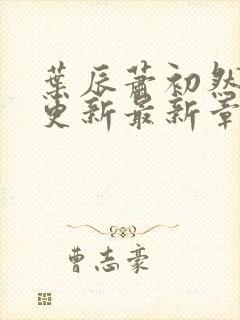 葉辰蕭初然
更新最新章
曹志豪